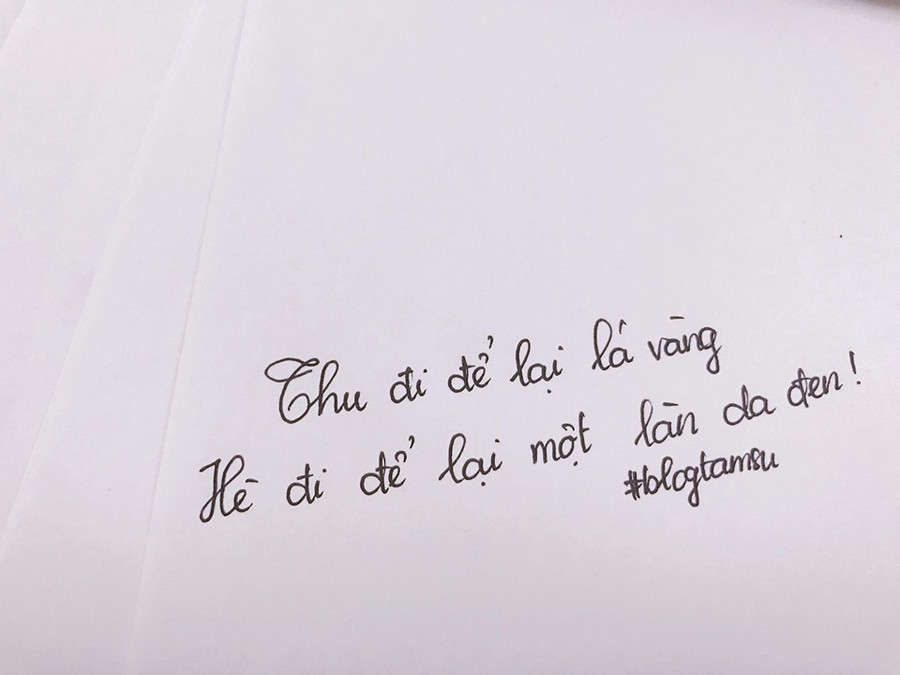 Thu đi để lại lá vàng
Hè đi để lại một làn da đen!
#blogtamsu